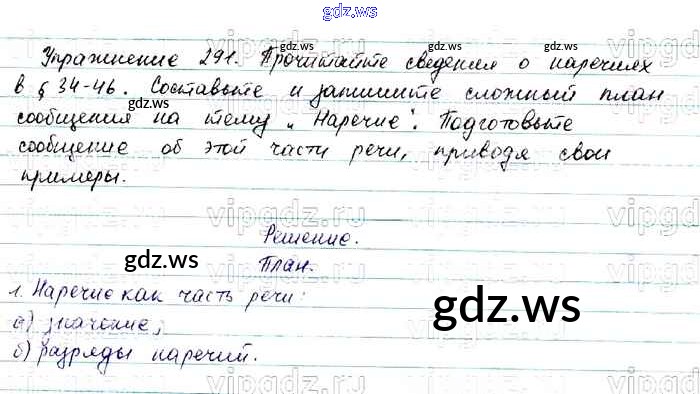 gdz.ws
Упражнение 291. Прочитайте сведения о наречиях
в § 34-46. Составьте и запишите сложный план
сообщения на тему „Наречие". Подготовьте
сообщение об этой части речи, приводя свои
примеры.
Решение.
План.
1. Наречие как часть речи:
а) значение;
б) разряды наречий.
gdz.ws
gdz.ws
gdz.ws
gdz.ws
gdz.ws
gdz.ws
vipgdz.ru
vipgdz.ru
vipgdz.ru